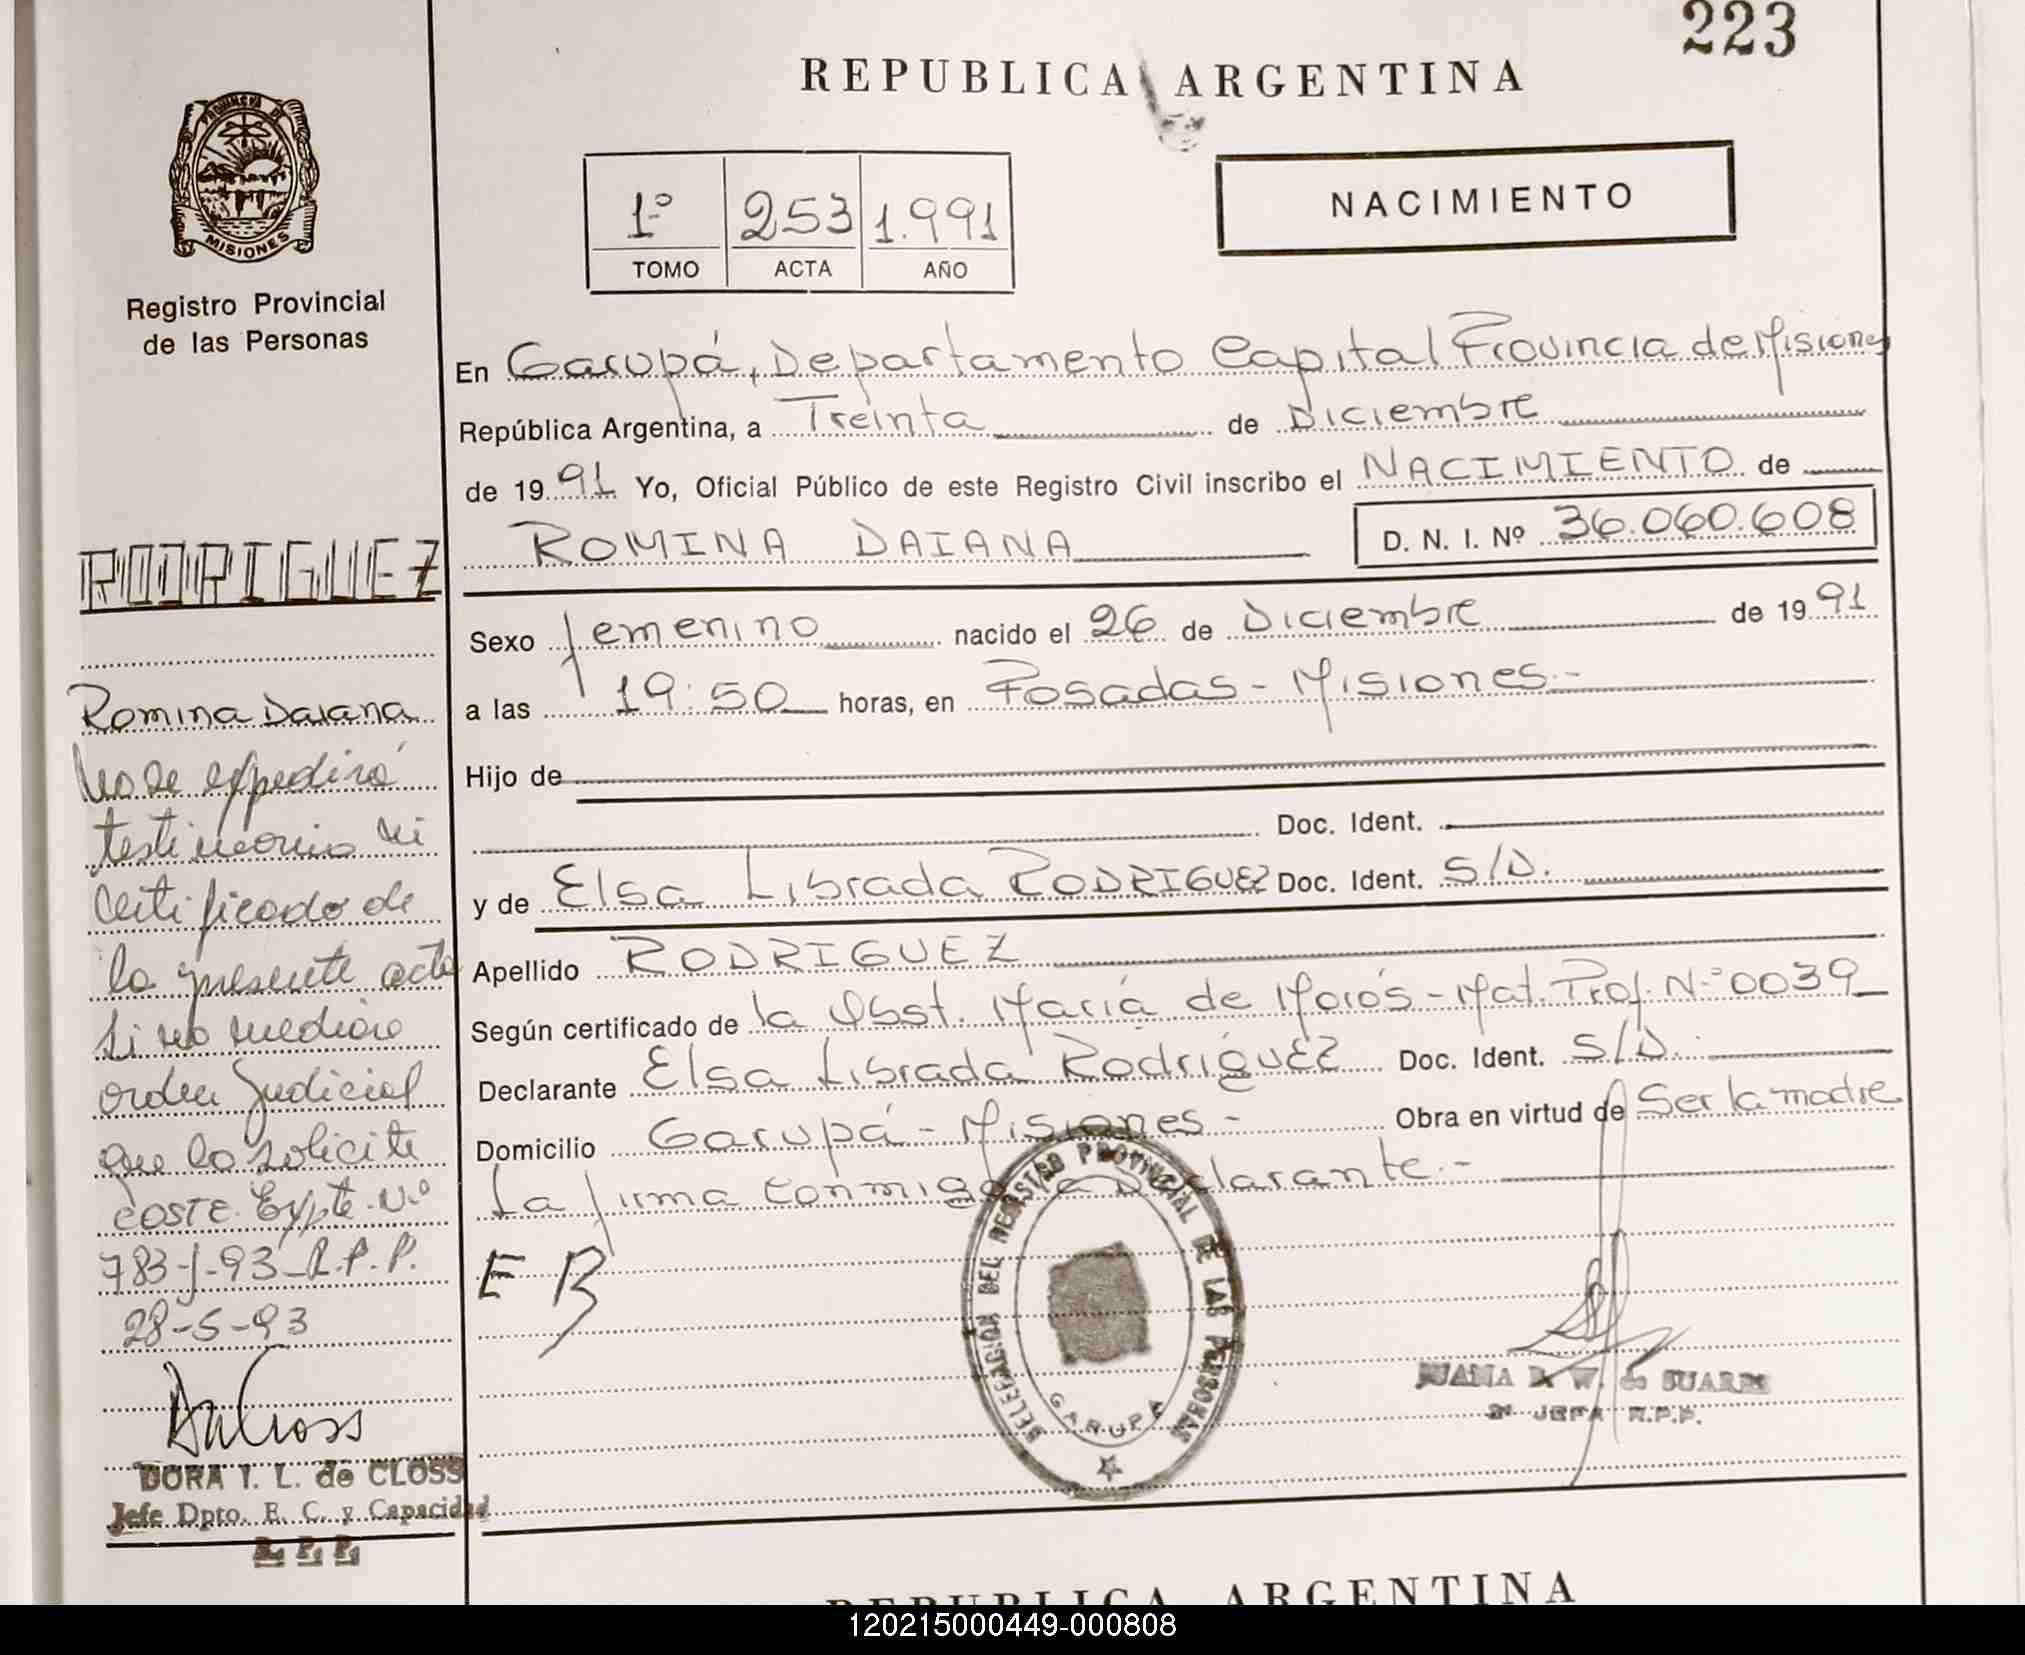 223
REPUBLICA ARGENTINA
PROVINCIA DE
MISIONES
Registro Provincial
de las Personas
1º 253 1.991
TOMO ACTA AÑO
NACIMIENTO
En Garupá, Departamento Capital Provincia de Misiones
República Argentina, a Treinta de Diciembre
de 19 91 Yo, Oficial Público de este Registro Civil inscribo el NACIMIENTO de
ROMINA DAIANA D. N. I. Nº 36.060.608
Sexo femenino nacido el 26 de Diciembre de 19 91
a las 19:50 horas, en Posadas - Misiones.-
Hijo de
Doc. Ident.
y de Elsa Librada RODRIGUEZ Doc. Ident. S/D.
Apellido RODRIGUEZ
Según certificado de la Obst. María de Morós - Mat. Prof. N.º 0039
Declarante Elsa Librada Rodríguez Doc. Ident. S/D.
Domicilio Garupá - Misiones - Obra en virtud de Ser la madre
La firma conmigo la Declarante.-
E B
DELEGACION DEL REGISTRO PROVINCIAL DE LAS PERSONAS
GARUPA
JUANA R. W. de SUAREZ
2ª JEFA R.P.P.
RODRIGUEZ
Romina Daiana
No se expedirá
testimonio ni
certificado de
la presente acta
si no media
orden judicial
que lo solicite
COSTE. Expte. Nº
783-J-93-R.P.P.
28-5-93
DORA I. L. de CLOSS
Jefe Dpto. E. C. y Capacidad
R. P. P.
REPUBLICA ARGENTINA
120215000449-000808